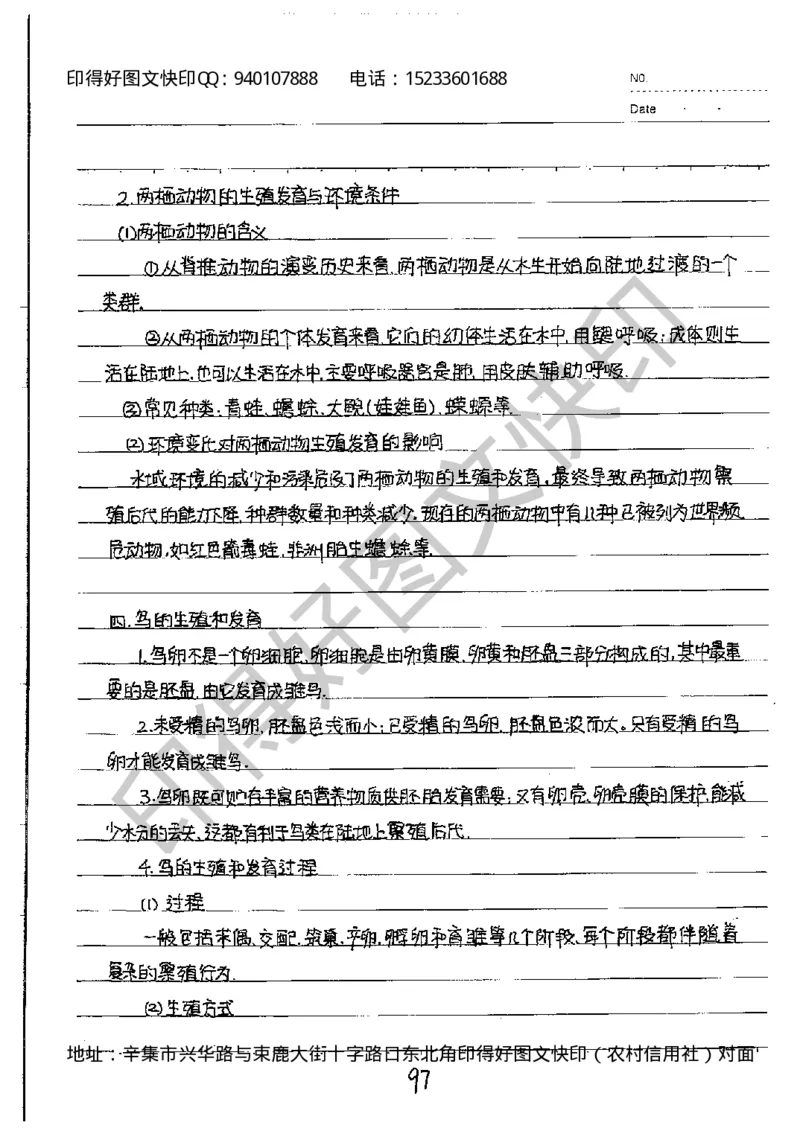 印得好图文快印QQ：940107888 电话：15233601688
NO.
Date
2.两栖动物的生殖发育与环境条件
(1)两栖动物的含义
①从脊椎动物的演变历史来看,两栖动物是从水生开始向陆地过渡的一个
类群.
②从两栖动物的个体发育来看,它们的幼体生活在水中,用鳃呼吸;成体则生
活在陆地上,也可以生活在水中,主要呼吸器官是肺,用皮肤辅助呼吸.
③常见种类:青蛙、蟾蜍、大鲵(娃娃鱼)、蝾螈等.
(2)环境变化对两栖动物生殖发育的影响
水域环境的减少和污染危及了两栖动物的生殖和发育,最终导致两栖动物繁
殖后代的能力下降,种群数量和种类减少.现在的两栖动物中有几种已被列为世界频
危动物,如红色箭毒蛙,非洲胎生蟾蜍等.
四.鸟的生殖和发育
1.鸟卵不是一个卵细胞,卵细胞是由卵黄膜、卵黄和胚盘三部分构成的,其中最重
要的是胚盘,由它发育成雏鸟.
2.未受精的鸟卵,胚盘色浅而小;已受精的鸟卵,胚盘色浓而大。只有受精的鸟
卵才能发育成雏鸟.
3.鸟卵既可贮存丰富的营养物质供胚胎发育需要;又有卵壳、卵壳膜的保护,能减
少水分的丢失,这都有利于鸟类在陆地上繁殖后代.
4.鸟的生殖和发育过程
(1)过程
一般包括求偶、交配、筑巢、产卵、孵卵和育雏等几个阶段,每个阶段都伴随着
复杂的繁殖行为.
(2)生殖方式
地址：辛集市兴华路与束鹿大街十字路口东北角印得好图文快印（农村信用社）对面
97
印得好图文快印